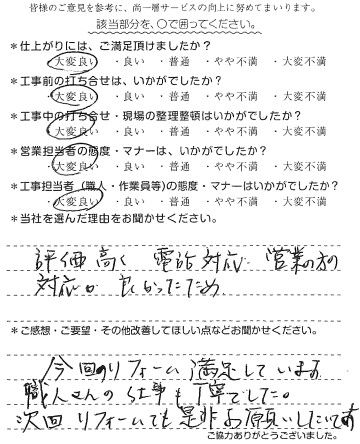 皆様のご意見を参考に、尚一層サービスの向上に努めてまいります。
該当部分を、○で囲ってください。
＊仕上がりには、ご満足頂けましたか？
・大変良い ・良い ・普通 ・やや不満 ・大変不満
＊工事前の打ち合せは、いかがでしたか？
・大変良い ・良い ・普通 ・やや不満 ・大変不満
＊工事中の打ち合せ・現場の整理整頓はいかがでしたか？
・大変良い ・良い ・普通 ・やや不満 ・大変不満
＊営業担当者の態度・マナーは、いかがでしたか？
・大変良い ・良い ・普通 ・やや不満 ・大変不満
＊工事担当者（職人・作業員等)の態度・マナーはいかがでしたか？
・大変良い ・良い ・普通 ・やや不満 ・大変不満
＊当社を選んだ理由をお聞かせください。
評価高く 電話対応 営業の方の
対応も良かったため
＊ご感想・ご要望・その他改善してほしい点などお聞かせください。
今回のリフォーム満足しています
職人さんの仕事も丁寧でした。
次回リフォームでも是非お願いしたいです
ご協力ありがとうございました。